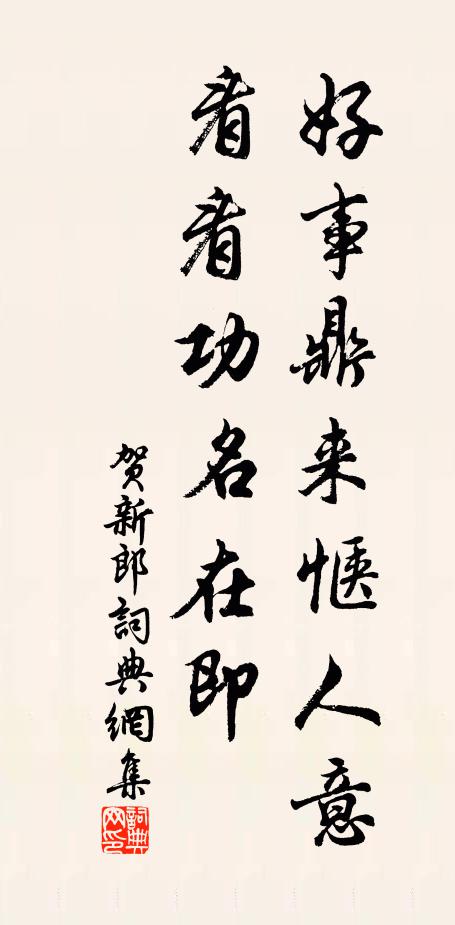 好事鼎来惬人意
看看功名在即
贺新郎詞典網集
詞典網印